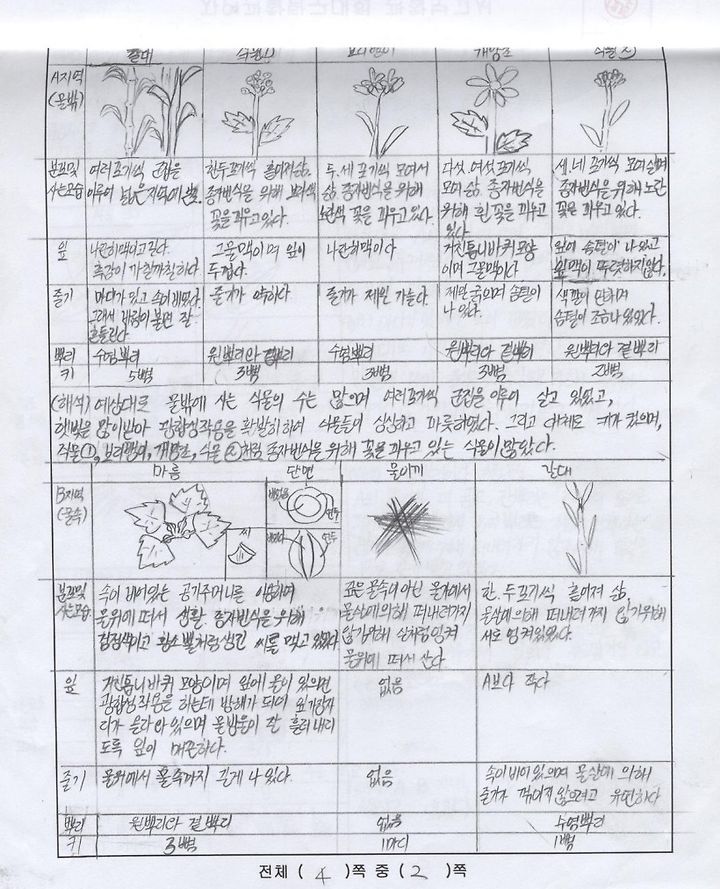 갈대 식물① 보리뺑이 개망초 식물②
A지역
(물밖)
분포및 사는모습
여러포기씩 군집을
이루어 넓은지역에 분포.
한두포기씩 흩어져삶.
종자번식을 위해 보라색
꽃을 피우고있다.
두.세 포기씩 모여서
삶. 종자번식을 위해
노란색 꽃을 피우고있다.
다섯.여섯포기씩
모여 삶. 종자번식을
위해 흰 꽃을 피우고
있다.
세.네 포기씩 모여살며
종자번식을위해 노란
꽃을 피우고있다.
잎
나란히맥이고길다.
촉감이 까칠까칠하다
그물맥이며 잎이
두껍다.
나란히맥이다
거친톱니바퀴모양
이며 그물맥이다.
잎에 솜털이 나 있고
잎맥이 뚜렷하지않다.
줄기
마디가 있고 속이비었다.
그래서 바람이불면 잘
흔들린다
줄기가 약하다.
줄기가 제일 가늘다.
제일 굵으며 솜털이
나 있다.
색깔이 연하며
솜털이 조금나있었다.
뿌리
수염뿌리
원뿌리와 곁뿌리
수염뿌리
원뿌리와 곁뿌리
원뿌리와 곁뿌리
키
5뼘
3뼘
3뼘
3뼘
2뼘
(해석) 예상대로 물밖에 사는 식물의 수는 많으며 여러포기씩 군집을 이루어 살고 있었고,
햇빛을 많이받아 광합성작용을 활발히하여 식물들이 싱싱하고 파릇하였다. 그리고 대체로 키가 컸으며,
식물①, 보리뺑이, 개망초, 식물②처럼 종자번식을 위해 꽃을 피우고 있는 식물이 많았다.
마름 단면 물이끼 갈대
B지역
(물속)
씨
분포및
사는모습
속이 비어있는 공기주머니를 이용하여
물위에 떠서 생활. 종자번식을 위해
검정색이고 황소뿔처럼생긴 씨를 맺고 있었다.
깊은 물속이 아닌 물가에서
물살에의해 떠내려가지
않기위해 실처럼엉켜
물위에 떠서 산다
한.두포기씩 흩어져 삶.
물살에의해 떠내려가지 않기위해
서로 엉켜있었다.
잎
거친톱니바퀴 모양이며 잎에 물이 있으면
광합성작용을 하는데 방해가 되어 잎가장자
리가 올라와 있으며 물방울이 잘 흘러내리
도록 잎이 매끈하다.
없음
A보다 작다
줄기
물위에서 물속까지 길게 나 있다.
없음
속이비어있으며 물살에 의해
줄기가 꺾이지않으려고 유연하다
뿌리
원뿌리와 곁뿌리
없음
수염뿌리
키
3뼘
1마디
1뼘
전체 ( 4 )쪽 중 ( 2 )쪽